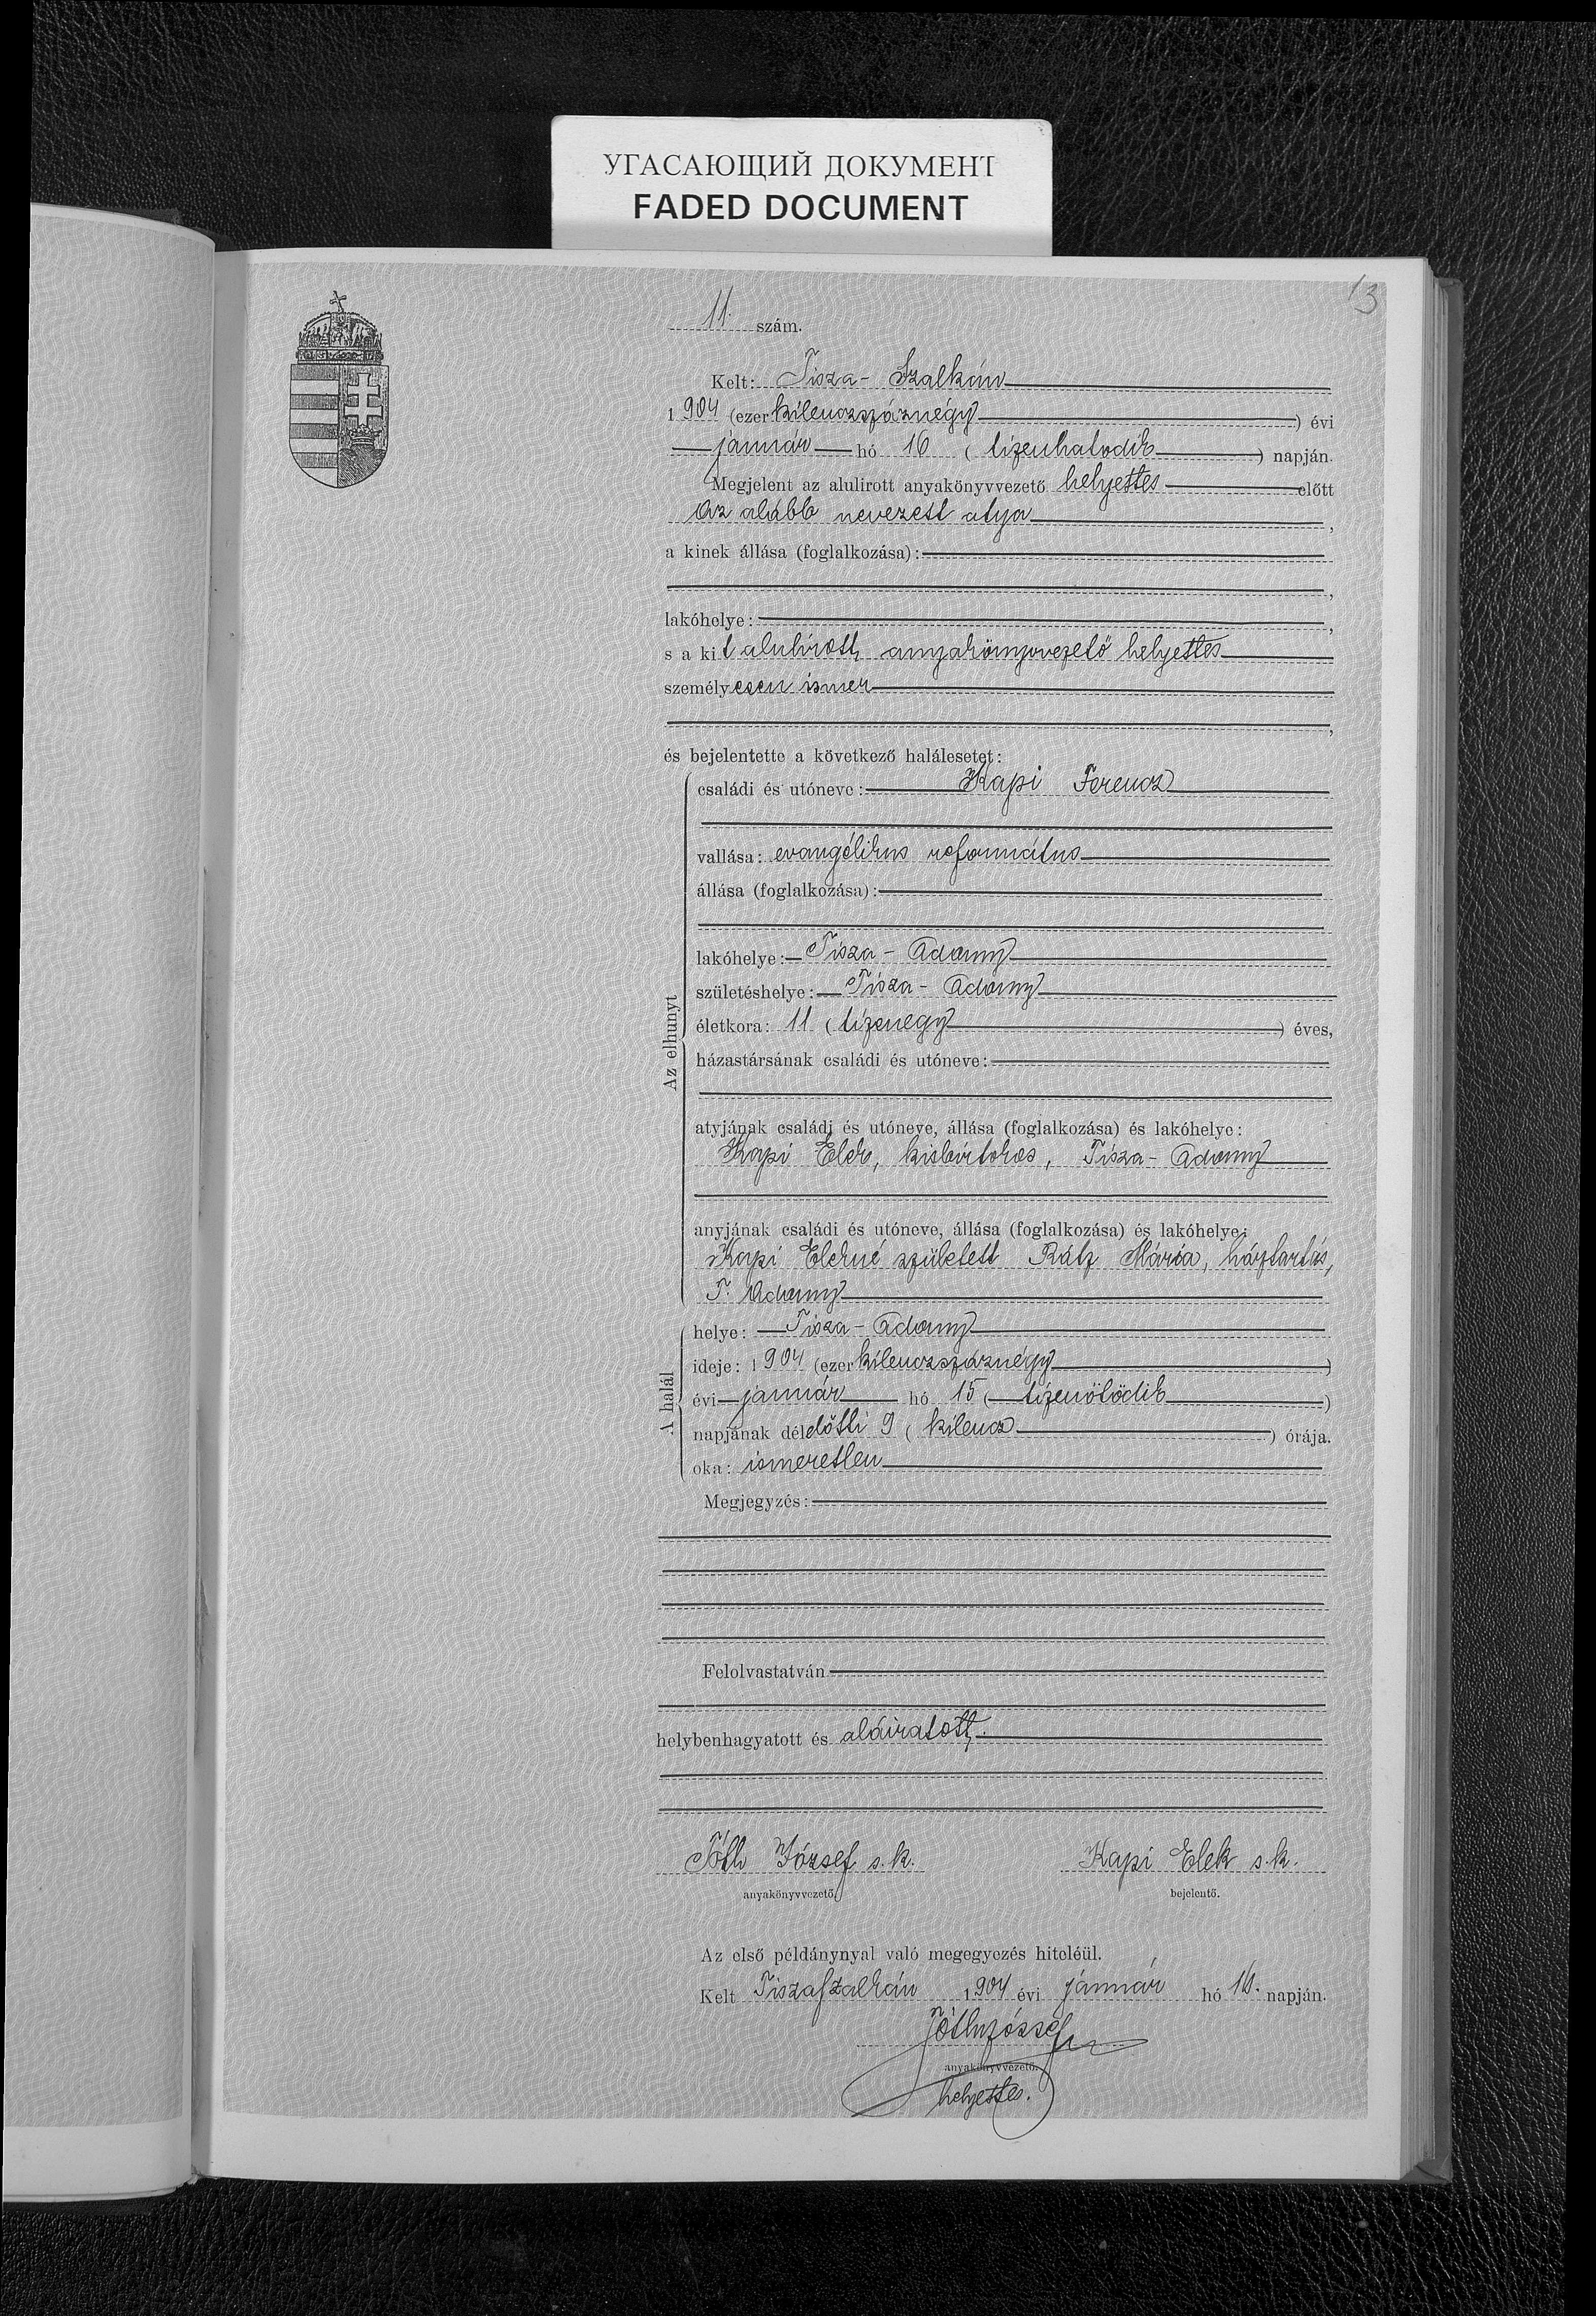 УГАСАЮЩИЙ ДОКУМЕНТ
FADED DOCUMENT
13
11. szám.
Kelt: Tisza-Szalkán
1904 (ezer kilenczszáznégy) évi
január hó 16 (tizenhatodik) napján.
Megjelent az alulirott anyakönyvvezető helyettes előtt
az alább nevezett atya,
a kinek állása (foglalkozása):
,
lakóhelye: ,
s a kit alulírott anyakönyvvezető helyettes
személyesen ismer
,
és bejelentette a következő halálesetet:
Az elhunyt
családi és utóneve: Kapi Ferencz
vallása: evangélikus református
állása (foglalkozása):
lakóhelye: Tisza-Adony
születéshelye: Tisza-Adony
életkora: 11 (tizenegy) éves,
házastársának családi és utóneve:
atyjának családi és utóneve, állása (foglalkozása) és lakóhelye:
Kapi Elek, kisbirtokos, Tisza-Adony
anyjának családi és utóneve, állása (foglalkozása) és lakóhelye:
Kapi Elekné született Rátz Mária, háztartás,
T. Adony
A halál
helye: Tisza-Adony
ideje: 1904 (ezer kilenczszáznégy)
évi január hó 15 (tizenötödik)
napjának délelőtti 9 (kilencz) órája.
oka: ismeretlen
Megjegyzés:
Felolvastatván
helybenhagyatott és aláiratott.
Tóth József s.k. Kapi Elek s.k.
anyakönyvvezető. bejelentő.
Az első példánynyal való megegyezés hiteléül.
Kelt Tiszaszalkán 1904 évi január hó 16. napján.
Tóth József
anyakönyvvezető.
helyettes.